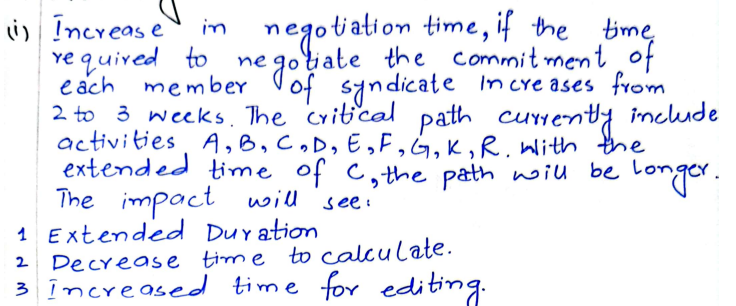 (i) Increase in negotiation time, if the time
required to negotiate the commitment of
each member of syndicate Increases from
2 to 3 weeks. The critical path currently include
activities A, B, C, D, E, F, G, K, R. With the
extended time of C, the path will be longer.
The impact will see:
1 Extended Duration
2 Decrease time to calculate.
3 Increased time for editing.